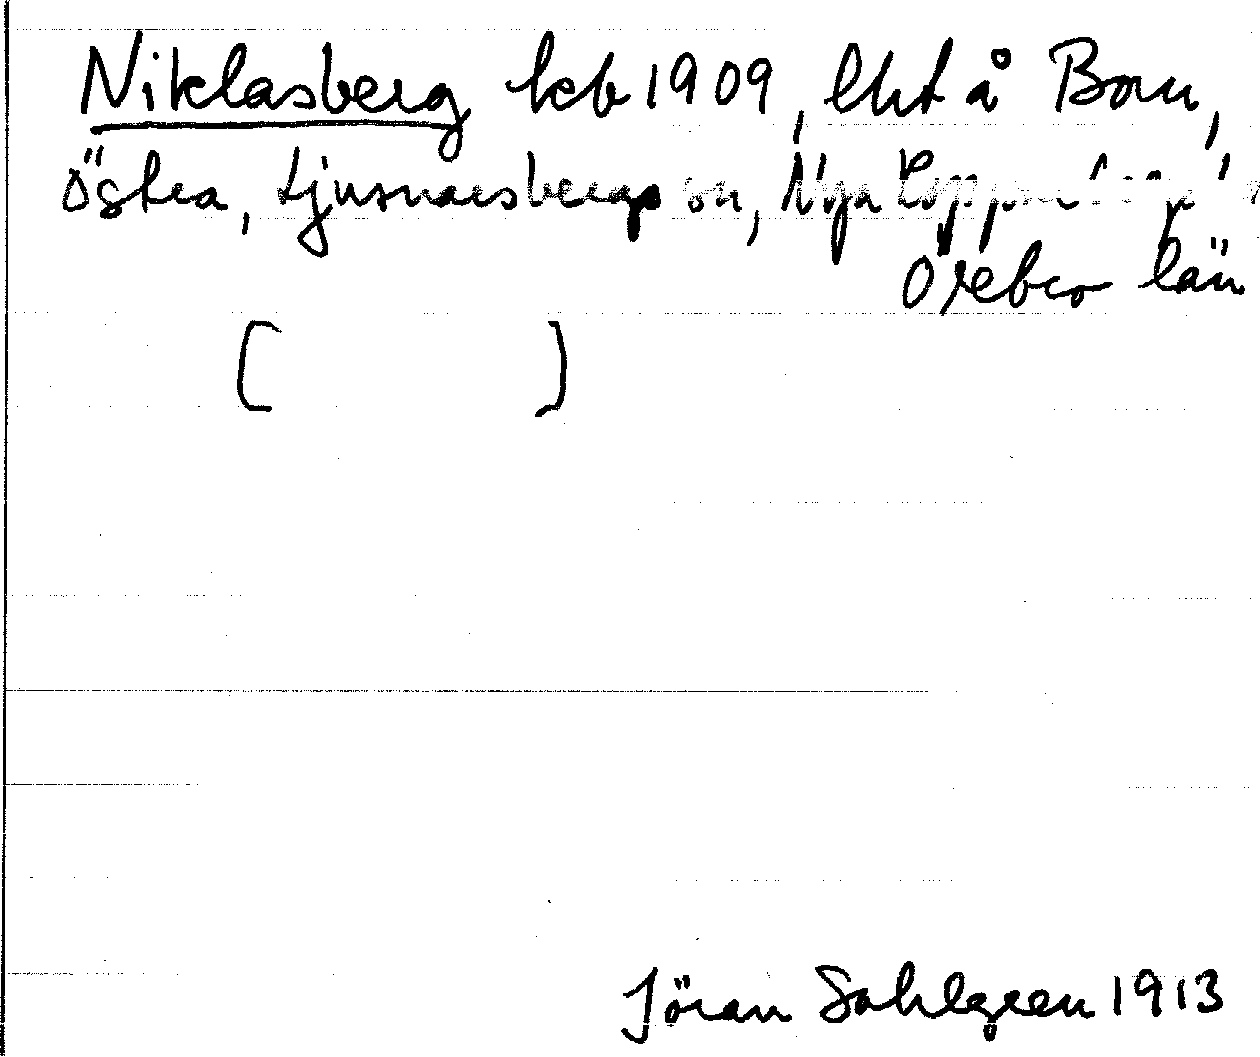 Niklasberg kcb 1909, lht å Born,
Östra, Ljusnarsbergs sn, Nya
Örebro län
[ ]
Jöran Sahlgren 1913